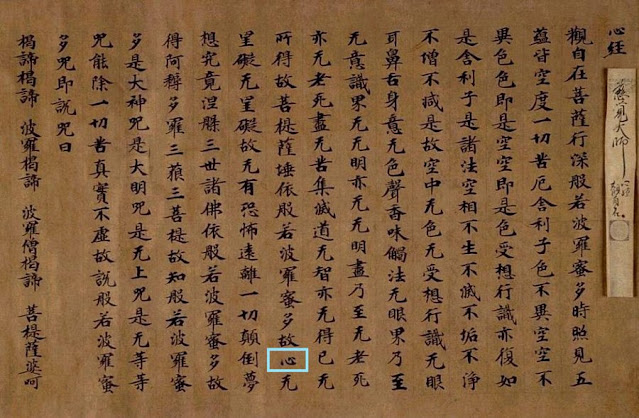 心経
觀自在菩薩行深般若波羅蜜多時照見五
蘊皆空度一切苦厄舍利子色不異空空不
異色色即是空空即是色受想行識亦復如
是舍利子是諸法空相不生不滅不垢不淨
不增不減是故空中无色无受想行識无眼
耳鼻舌身意无色聲香味觸法无眼界乃至
无意識界无无明亦无无明盡乃至无老死
亦无老死盡无苦集滅道无智亦无得已无
所得故菩提薩埵依般若波羅蜜多故心无
罣礙无罣礙故无有恐怖遠離一切顛倒夢
想究竟涅槃三世諸佛依般若波羅蜜多故
得阿耨多羅三藐三菩提故知般若波羅蜜
多是大神咒是大明咒是无上咒是无等等
咒能除一切苦真實不虛故說般若波羅蜜
多咒即說咒曰
揭諦揭諦 波羅揭諦 波羅僧揭諦 菩提薩婆呵
大師